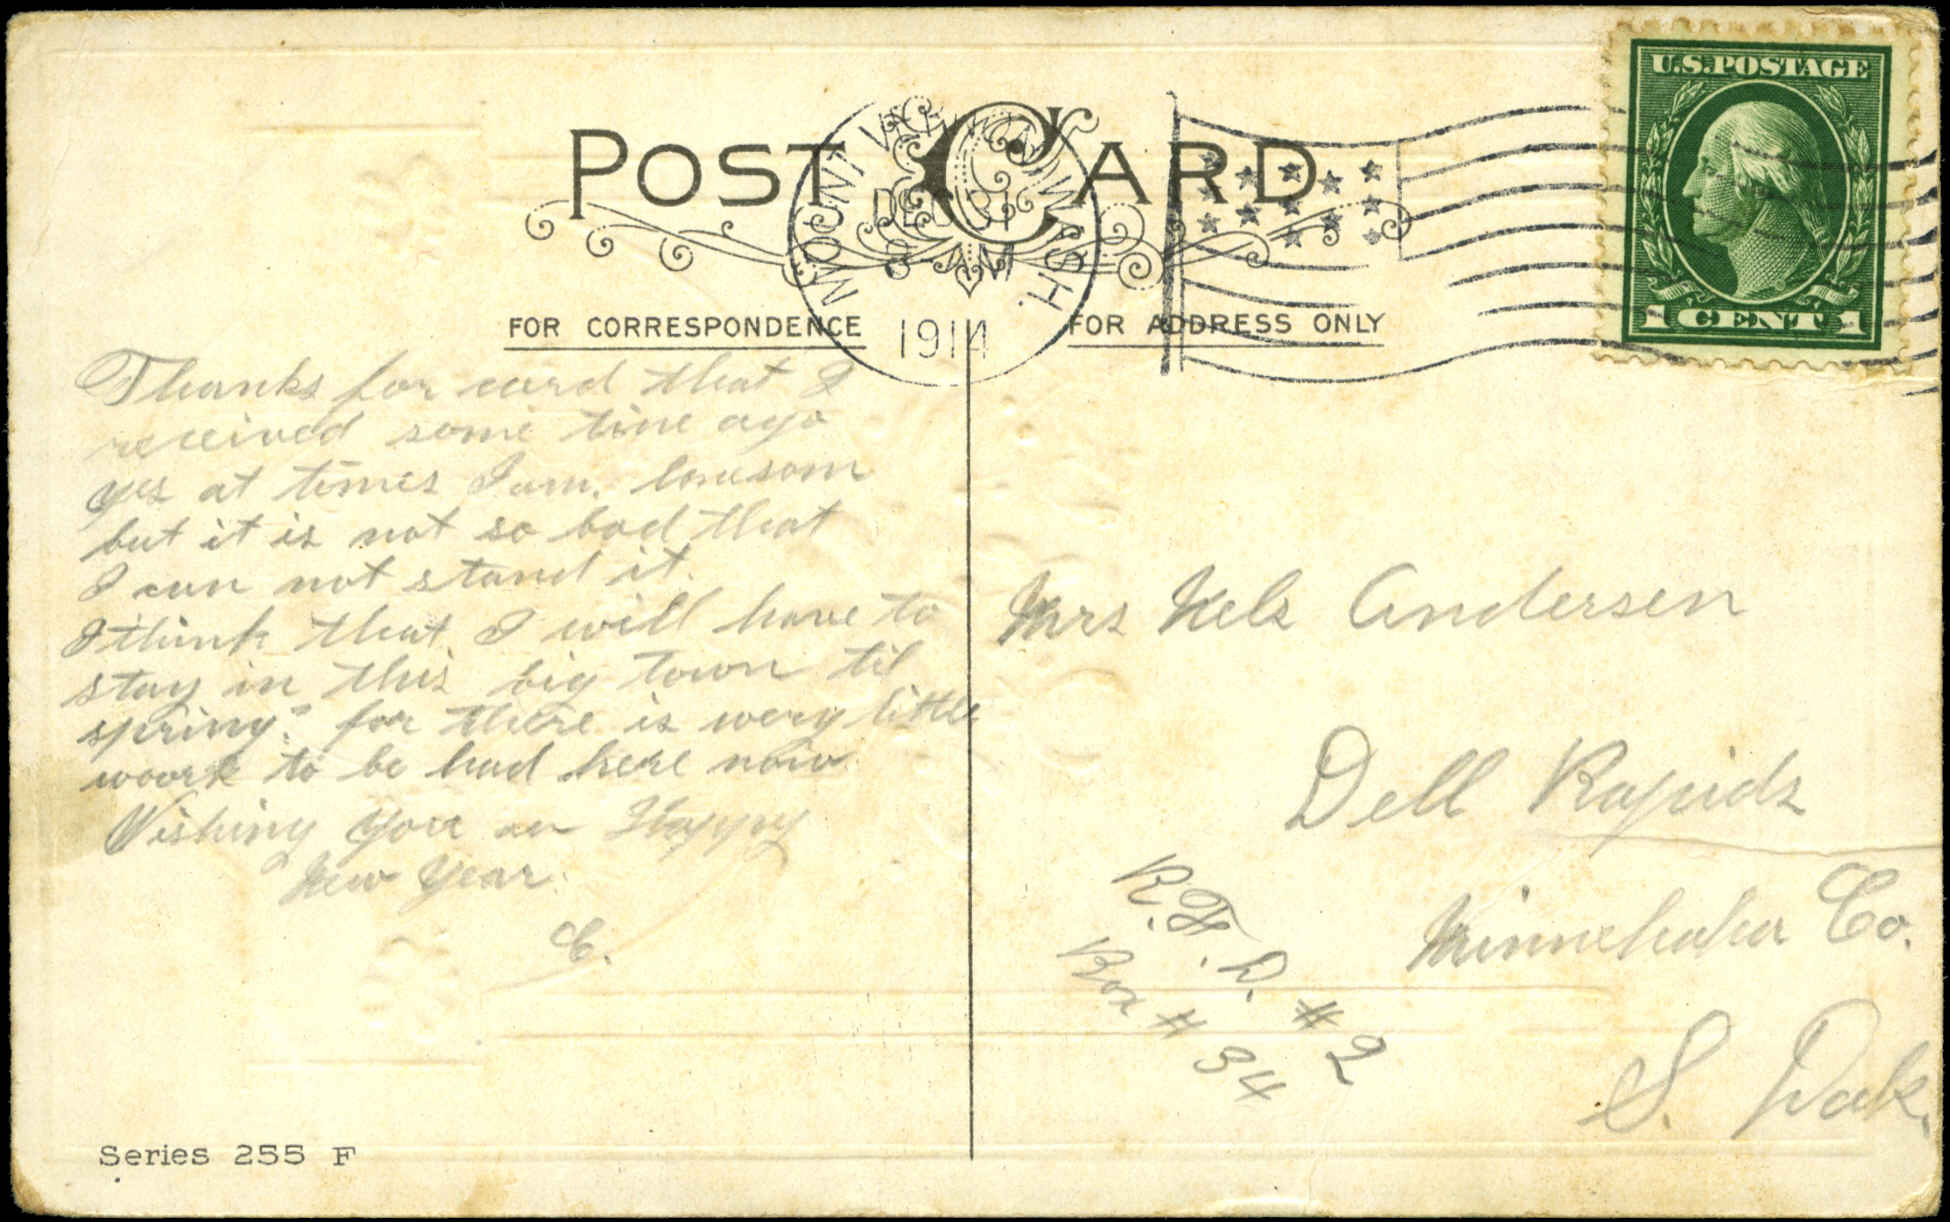 U.S.POSTAGE
1 CENT 1
POST CARD
MOUNT VERNON, WASH.
DEC 31
AM
1914
FOR CORRESPONDENCE
FOR ADDRESS ONLY
Thanks for card that I
received some time ago
Yes at times I am. lonesom
but it is not so bad that
I can not stand it.
I think that I will have to
stay in this big town til
spring. for there is wery little
woork to be had here now.
Wishing you an Happy
New Year.
C.
Mrs Nels Andersen
Dell Rapids
Minnehaha Co.
S. Dak.
R.F.D. #2
Box #34
Series 255 F